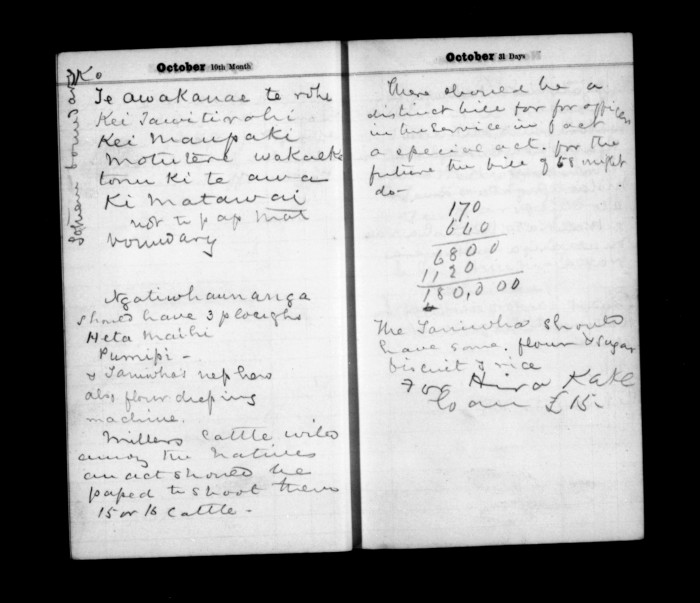 October 10th Month
Ko
Te awakanae te rohe
Kei Tawitirohi
Kei Maupaki
Motutere wakaeke
tonu ki te awa
Ki Matawai
not to pap Mat
boundary
Ngatiwhaunaunga
should have 3 ploughs
Heta Maihi
Pumipi -
& Taniwha's nephew
also flour dressing
machine.
Millers cattle wild
among the natives
an act should be
passed to shoot them
15 or 16 cattle -
October 31 Days
There should be a
distinct bill for for officers
in the service in fact
a special act. for the
future the bill of 58 might
do -
170
640
6800
1120
180,000
The Taniwha should
have some. flour & sugar
biscuit & rice
For Hira Kake
loan £15-